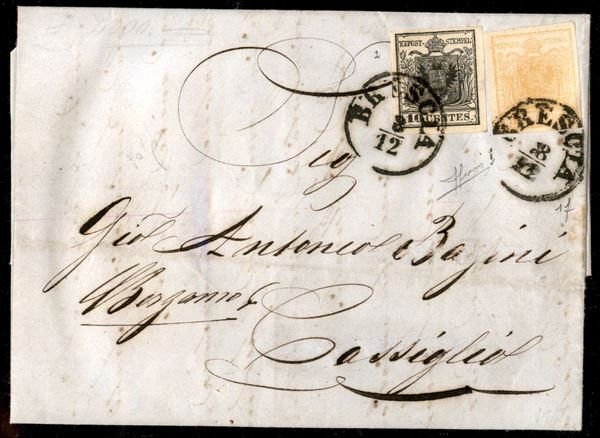 KKPOST-STEMPEL
10 CENTES.
BRESCIA
8/12
BRESCIA
8/12
Sig
Gio Antonio Bazini
Bergamo
Cassiglio
2
17